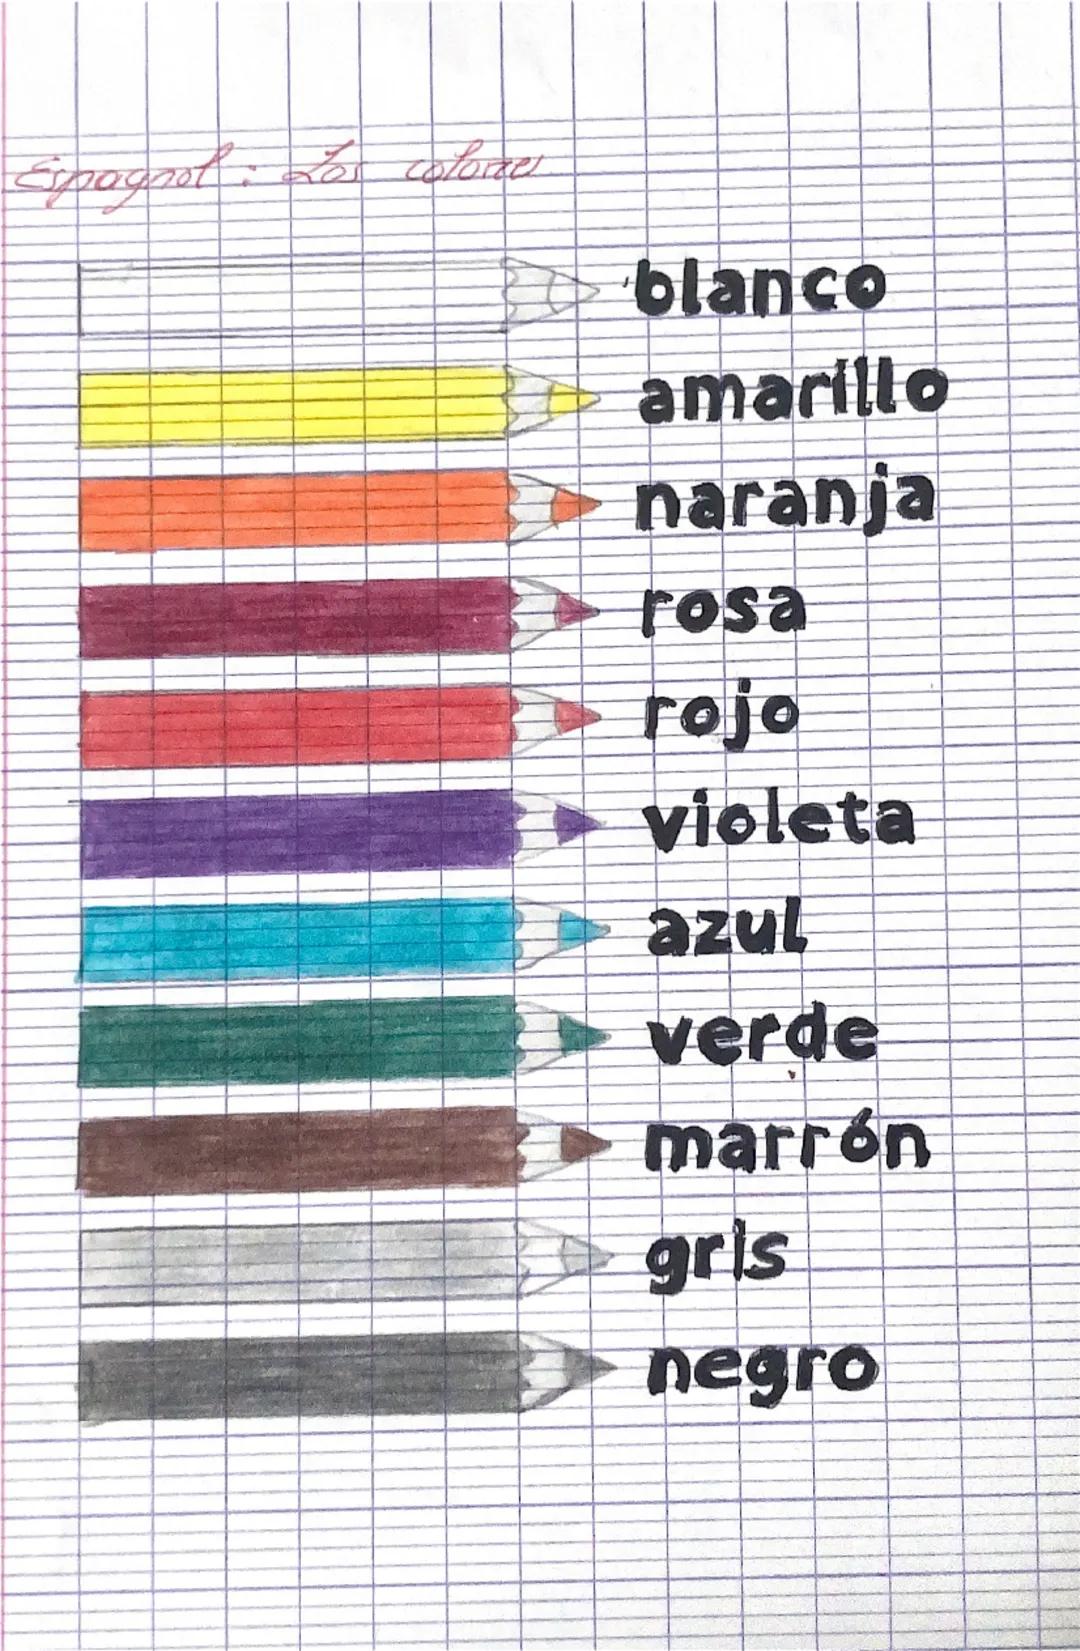 Espagnol : Los colores
blanco
amarillo
naranja
rosa
rojo
violeta
azul
verde
marrón
gris
negro